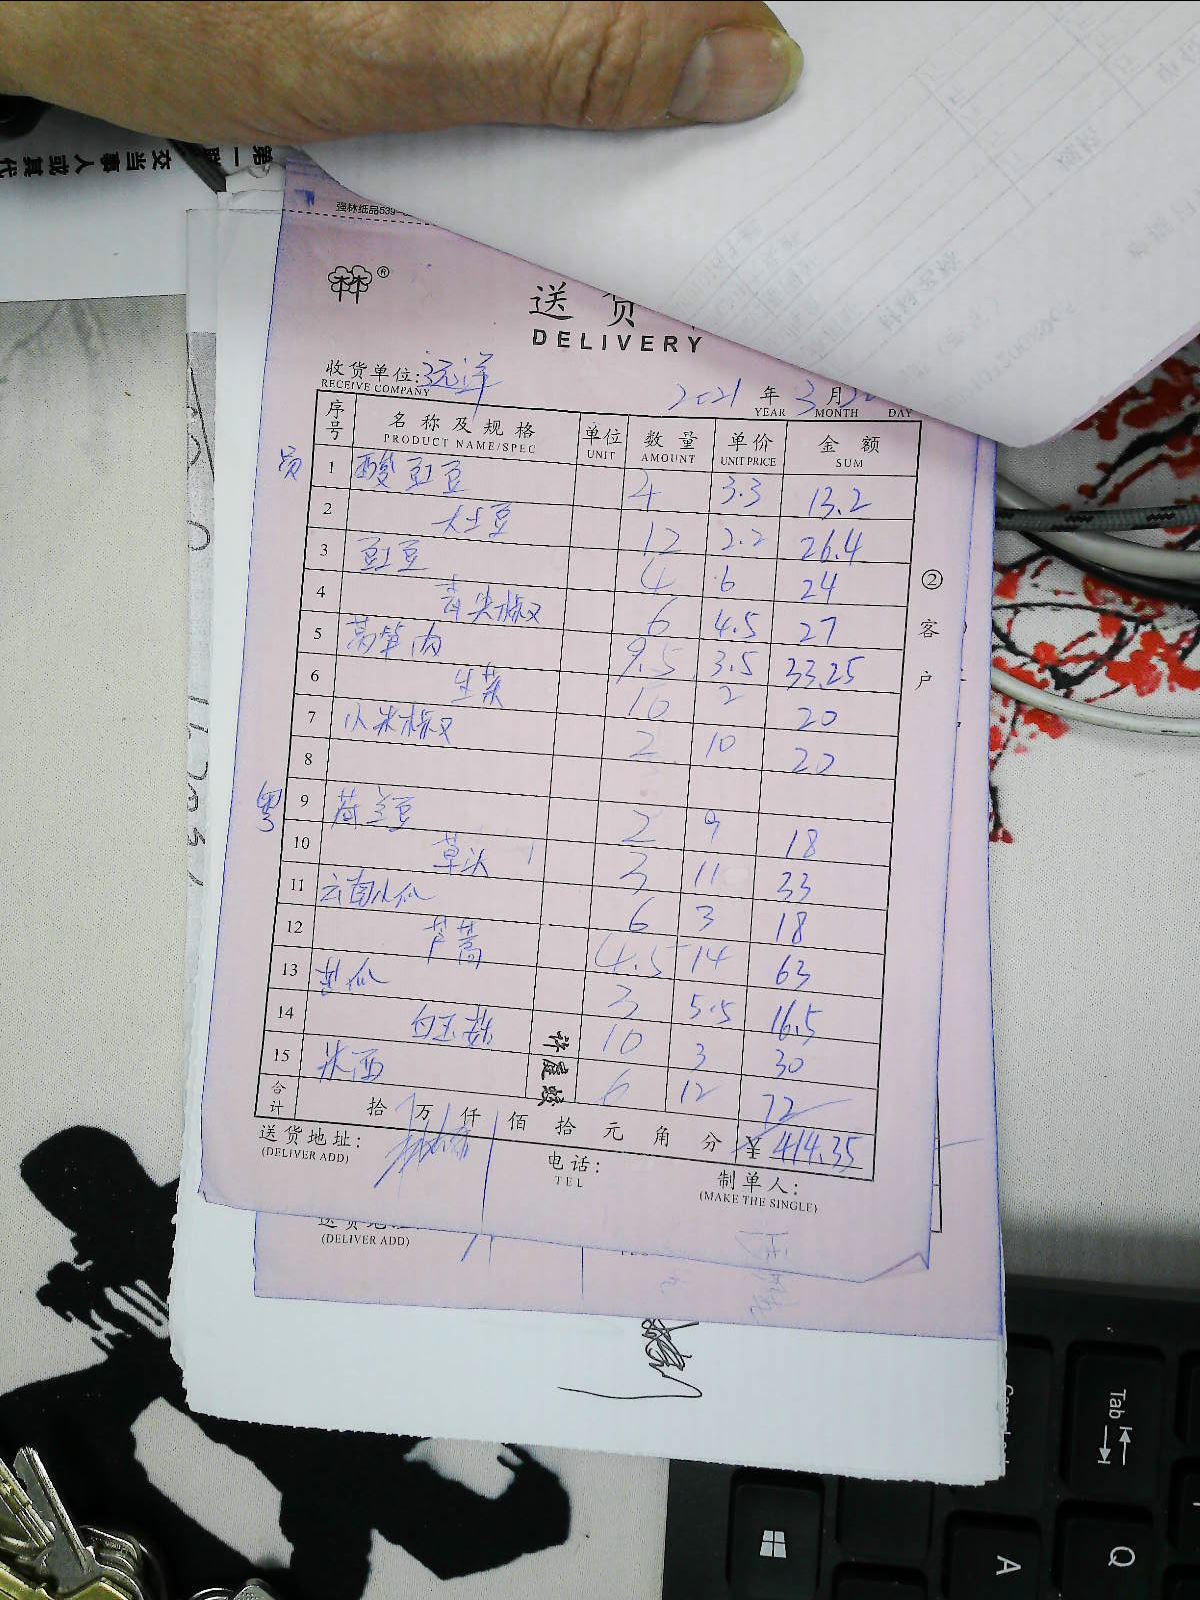 第一联 交当事人或其代
强林纸品539-
®
送 货
DELIVERY
收货单位: 远洋 2021 年 3 月
RECEIVE COMPANY YEAR MONTH DAY
序号 名称及规格 单位 数量 单价 金额
PRODUCT NAME/SPEC UNIT AMOUNT UNIT PRICE SUM
员 1 酸豇豆 4 3.3 13.2
2 大土豆 12 2.2 26.4
3 豇豆 4 6 24
4 青尖椒 6 4.5 27
5 莴笋肉 9.5 3.5 33.25
6 生菜 10 2 20
7 小米椒 2 10 20
8
粤 9 荷兰豆 2 9 18
10 草头 3 11 33
11 云南小瓜 6 3 18
12 芦蒿 4.5 14 63
13 苦瓜 3 5.5 16.5
14 10 3 30
15 米西 6 12 72
合计 拾 万 仟 佰 拾 元 角 分 ¥ 414.35
送货地址: 电话: 制单人:
(DELIVER ADD) TEL (MAKE THE SINGLE)
② 客户
(DELIVER ADD)
Tab
Q
A